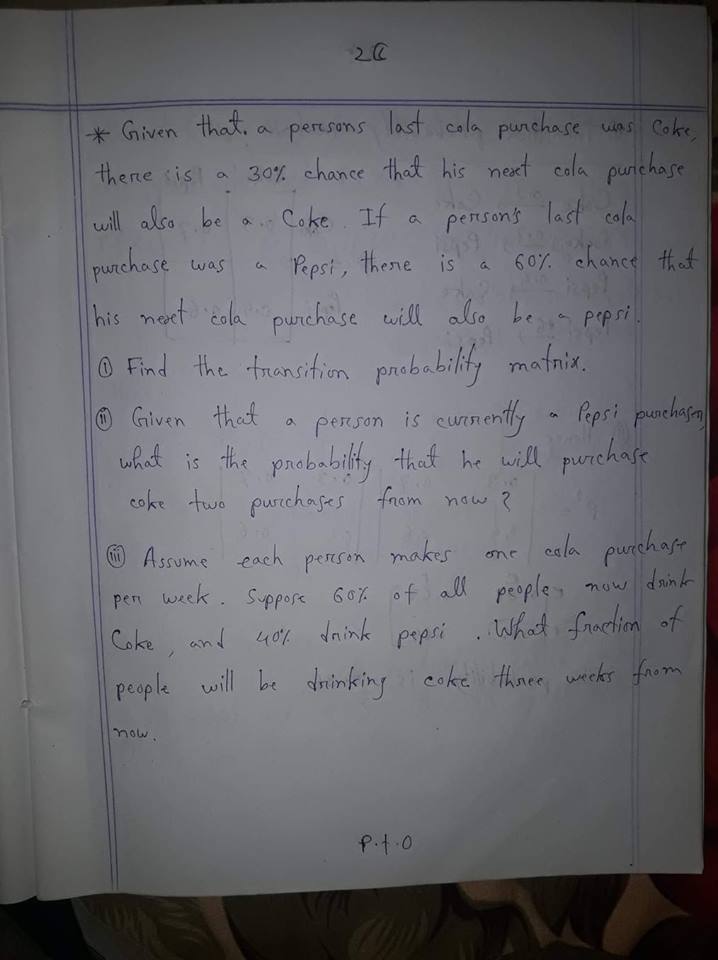 * Given that. a persons last cola purchase was Coke,
there is a 30% chance that his next cola purchase
will also be a Coke. If a person's last cola
purchase was a Pepsi, there is a 60% chance that
his next cola purchase will also be a pepsi.
(i) Find the transition probability matrix.
(ii) Given that a person is currently a Pepsi purchaser,
what is the probability that he will purchase
coke two purchases from now?
(iii) Assume each person makes one cola purchase
per week. Suppose 60% of all people now drink
Coke, and 40% drink pepsi. What fraction of
people will be drinking coke three weeks from
now.
P.t.O